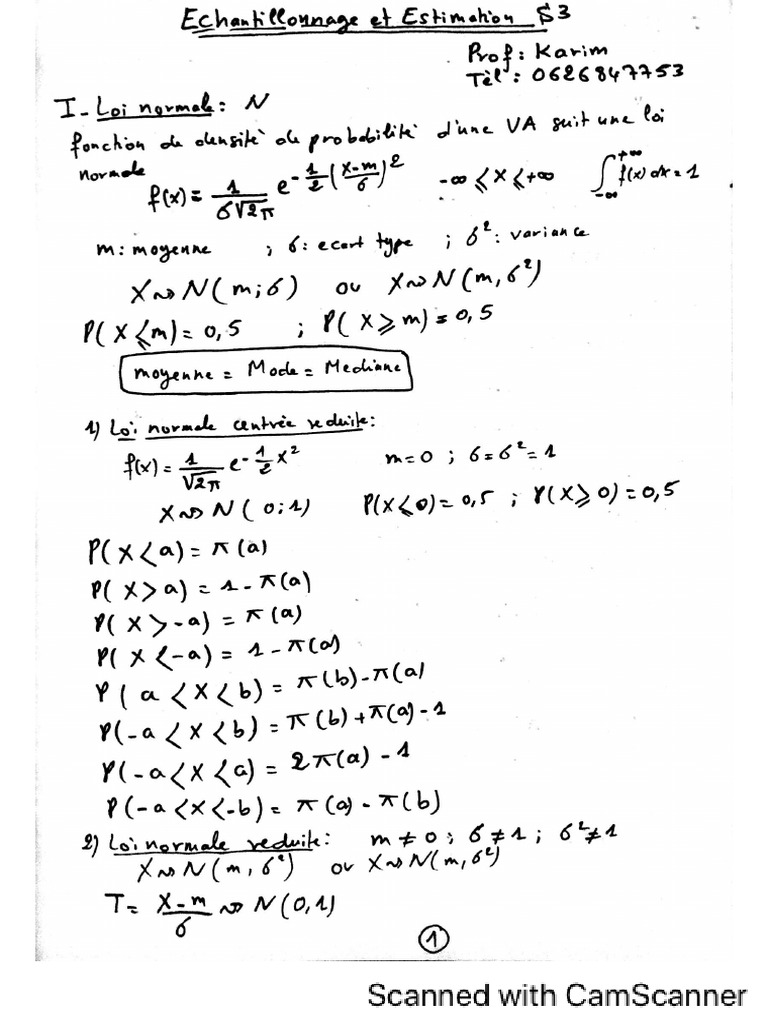 Echantillonnage et Estimation S3
Prof: Karim
Tèl: 0626847753
I- Loi normale: N
fonction de densité de probabilité d'une VA suit une loi
normale
f(x) = 1/(σ√2π) e^(-1/2 ((x-m)/σ)²)   -∞ ⩽ x ⩽ +∞   ∫_{-∞}^{+∞} f(x) dx = 1
m: moyenne ; σ: ecart type ; σ²: variance
X ~> N(m; σ) ou X ~> N(m, σ²)
P(X ⩽ m) = 0,5 ; P(X ⩾ m) = 0,5
moyenne = Mode = Mediane
1) Loi normale centrée reduite:
f(x) = 1/√2π e^(-1/2 x²)   m=0 ; σ=σ²=1
X ~> N(0;1)   P(X ⩽ 0) = 0,5 ; P(X ⩾ 0) = 0,5
P(X < a) = π(a)
P(X > a) = 1 - π(a)
P(X > -a) = π(a)
P(X < -a) = 1 - π(a)
P(a < X < b) = π(b) - π(a)
P(-a < X < b) = π(b) + π(a) - 1
P(-a < X < a) = 2π(a) - 1
P(-a < X < -b) = π(a) - π(b)
2) Loi normale reduite: m ≠ 0 ; σ ≠ 1 ; σ² ≠ 1
X ~> N(m, σ²) ou X ~> N(m, σ²)
T = (X-m)/σ ~> N(0,1)
1
Scanned with CamScanner